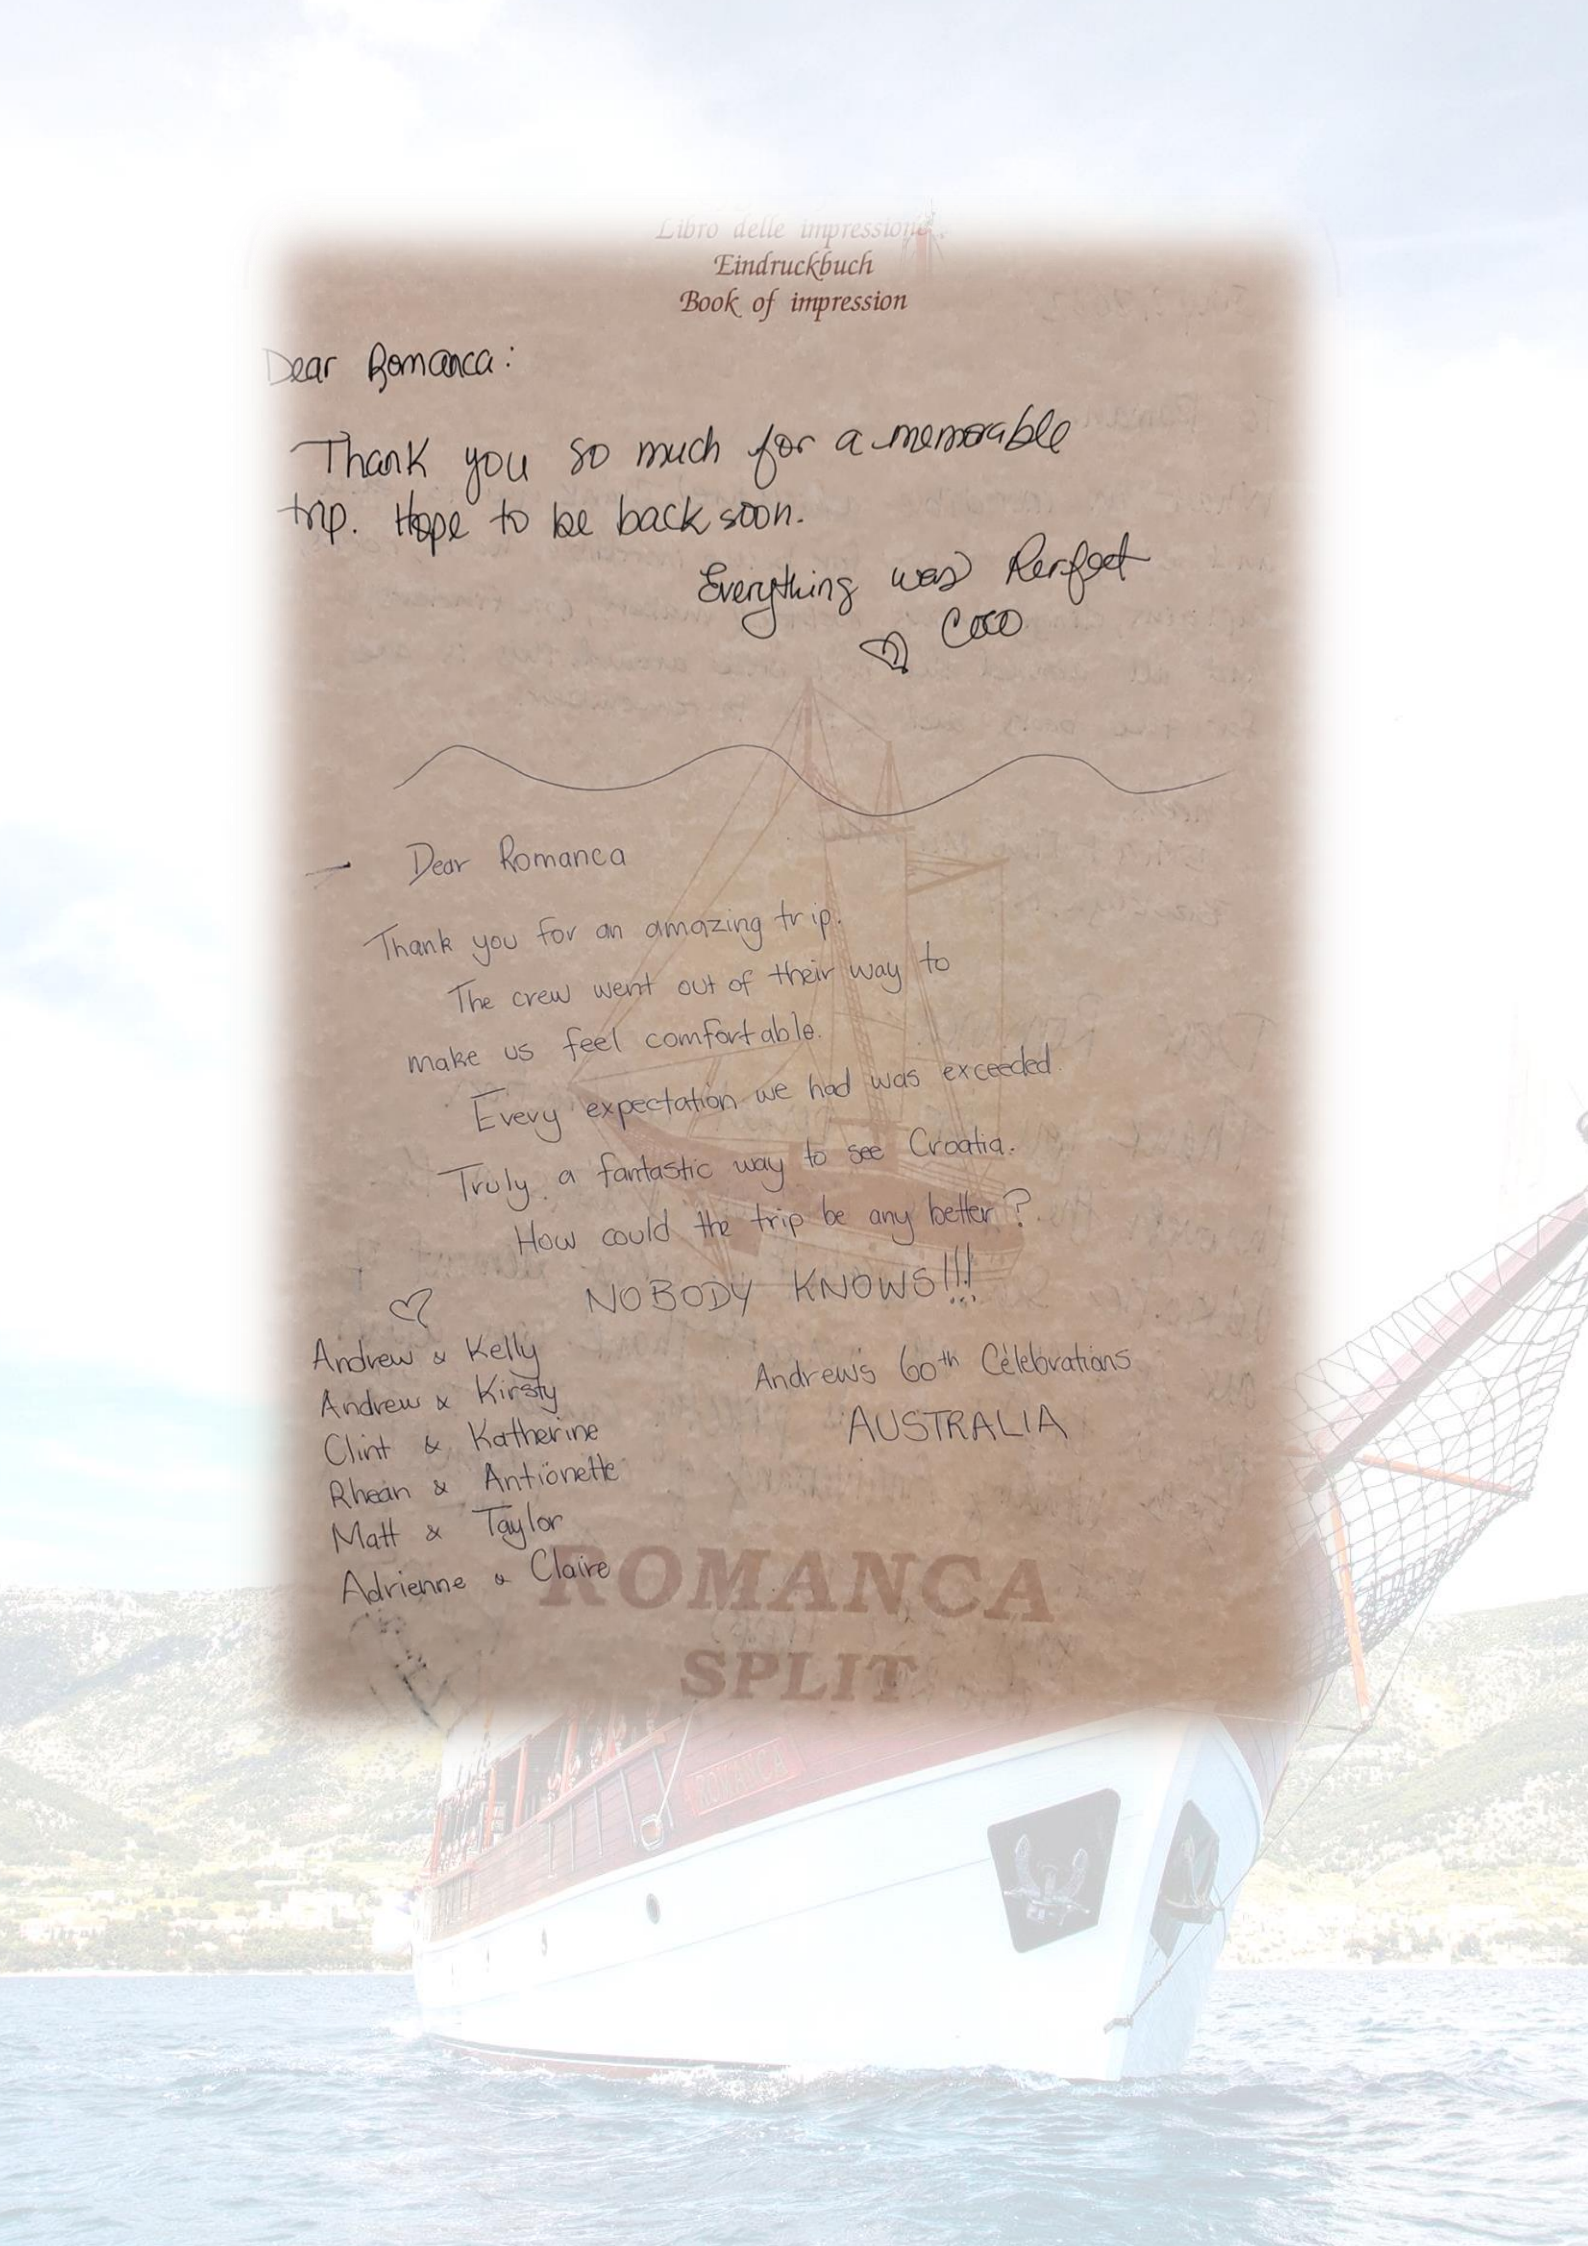 Libro delle impressione
Eindruckbuch
Book of impression
Dear Romanca:
Thank you so much for a memorable
trip. Hope to be back soon.
Everything was Perfect
Coco
Dear Romanca
Thank you for an amazing trip.
The crew went out of their way to
make us feel comfortable.
Every expectation we had was exceeded.
Truly a fantastic way to see Croatia.
How could the trip be any better?
NOBODY KNOWS!!!
Andrew & Kelly
Andrew & Kirsty
Clint & Katherine
Rhean & Antionette
Matt & Taylor
Adrienne & Claire
Andrew's 60th Celebrations
AUSTRALIA
ROMANCA
SPLIT
ROMANCA